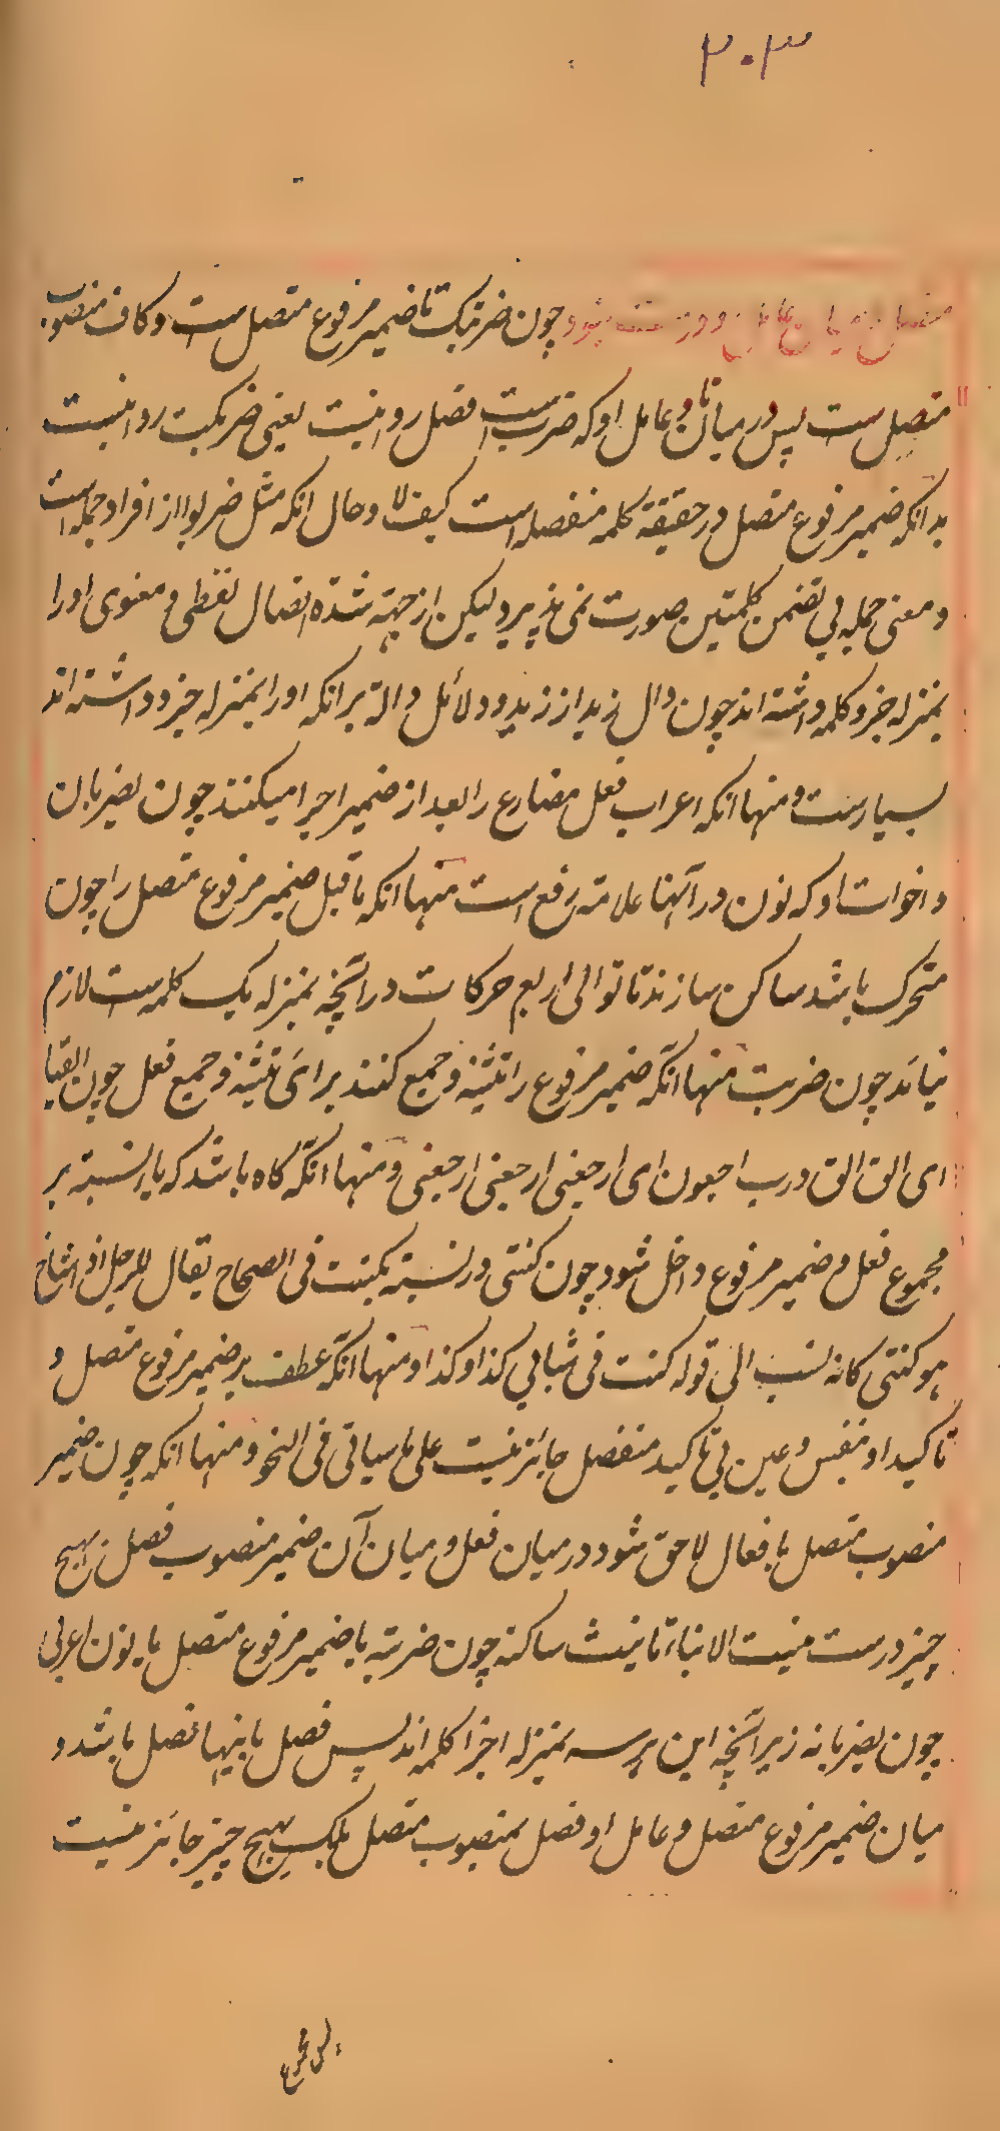 ۲۰۳
چون ضربتک تا ضمیر مرفوع متصل ست و کاف منصوب
متصل ست پس در میان تا و عامل او که ضرب ست فصل روا نیست یعنی ضربکت روا نیست
بدانکه ضمیر مرفوع متصل در حقیقة کلمه منفصله است کیف لا و حال انکه مثل ضربوا از افراد جمله است
و معنی جمله بی تضمن کلمتین صورت نمی پذیرد لیکن از جهة شدة اتصال لفظی و معنوی او را
بمنزله جزو کلمه داشته اند چون دال زید از زید و دلائل دالة برانکه او را بمنزله جزو داشته اند
بسیارست و منها انکه اعراب فعل مضارع را بعد از ضمیر اجرا میکنند چون یضربان
و اخوات او که نون در آنها علامة رفع است منها انکه ماقبل ضمیر مرفوع متصل را چون
متحرک باشد ساکن سازند تا توالی اربع حرکات در آنچه بمنزله یک کلمه ست لازم
نیاید چون ضربت منها آنکه ضمیر مرفوع را تثنیه و جمع کنند برای تثنیه و جمع فعل چون القیا
ای الق الق و رب ارجعون ای ارجعنی ارجعنی ارجعنی و منها آنکه گاه باشد که یا نسبة بر
مجموع فعل و ضمیر مرفوع داخل شود چون کنتی در نسبة بکنت فی الصحاح یقال للرجل اذا شاخ
هو کنتی کانه نسب الی قوله کنت فی شبابی کذا و کذا و منها آنکه عطف بر ضمیر مرفوع متصل و
تاکید او بنفس و عین بی تاکید منفصل جائز نیست علی ما سیاتی فی النحو و منها انکه چون ضمیر
منصوب متصل بافعال لاحق شود در میان فعل و میان آن ضمیر منصوب فصل بهیچ
چیز درست نیست الا بتاء تانیث ساکنه چون ضربته یا ضمیر مرفوع متصل یا نون اعرابی
چون یضربانه زیرا آنچه این هر سه بمنزله اجزا کلمه اند پس فصل باینها نصل باشد و
میان ضمیر مرفوع متصل و عامل او فصل بمنصوب متصل بلک بهیچ چیز جائز نیست